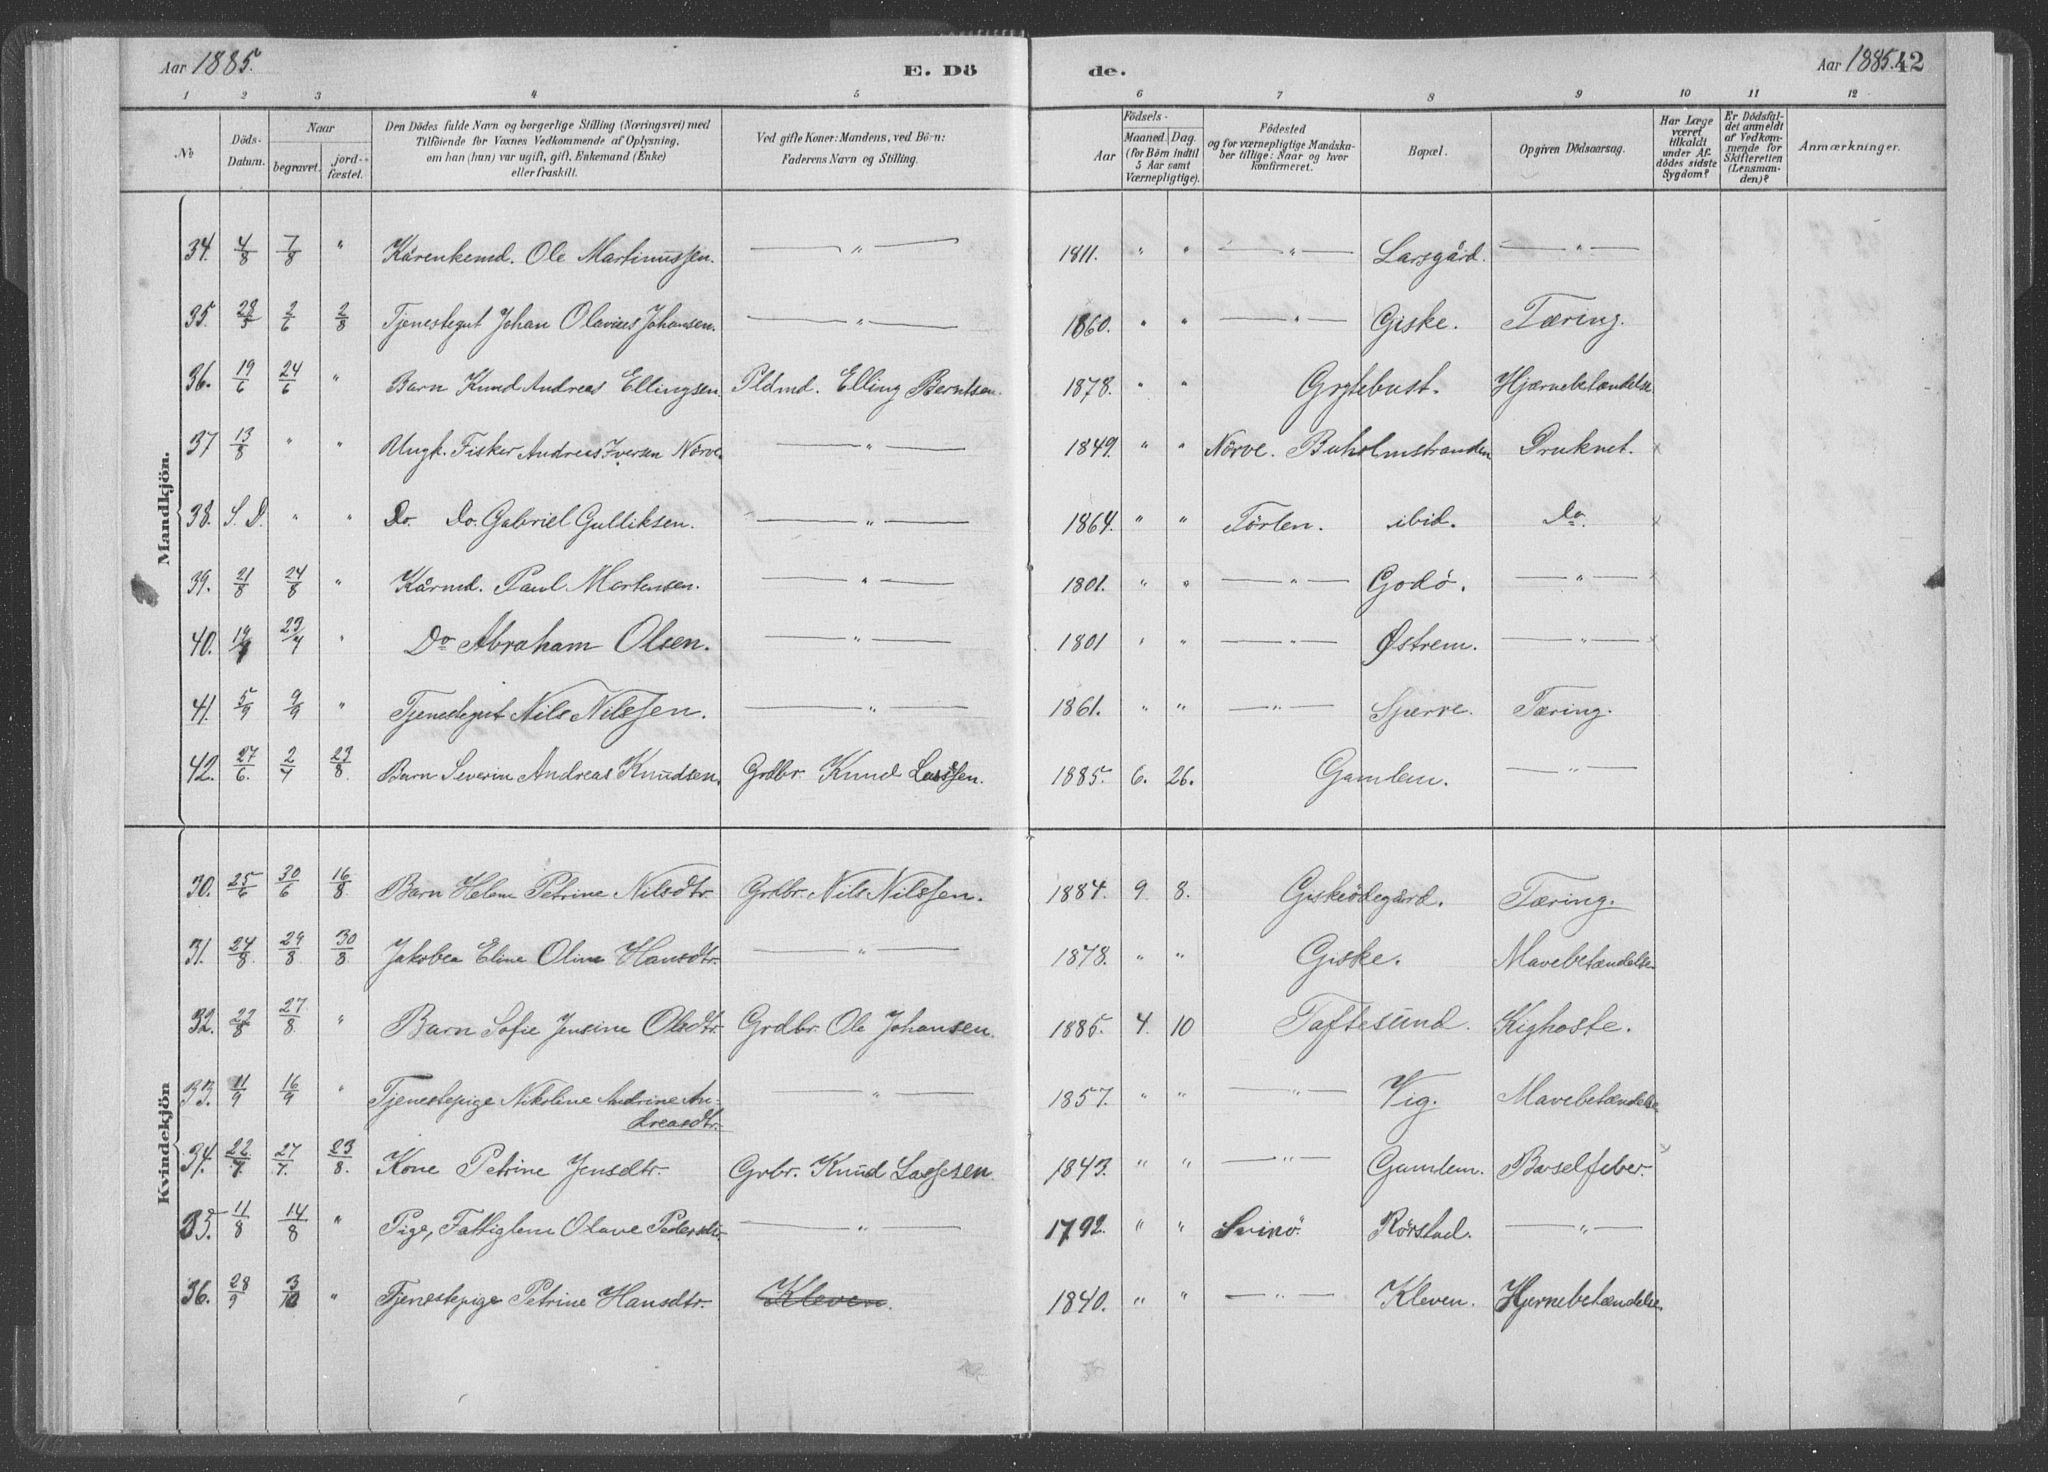 Aar 1885. E. Dö de. Aar 1885. 42
1 2 3 4 5 6 7 8 9 10 11 12
No Döds-Datum. Naar begravet. jord-fæstet. Den Dödes fulde Navn og borgerlige Stilling (Næringsvei) med Tilföiende for Voxnes Vedkommende af Oplysning, om han (hun) var ugift, gift, Enkemand (Enke) eller fraskilt. Ved gifte Koner: Mandens, ved Börn: Faderens Navn og Stilling. Födsels- Aar Maaned Dag. (for Börn indtil 5 Aar samt Værnepligtige). Födested og for værnepligtige Mandskaber tillige: Naar og hvor konfirmeret. Bopæl. Opgiven Dödsaarsag. Har Læge været tilkaldt under Afdödes sidste Sygdom? Er Dödsfaldet anmeldt af Vedkommende for Skifteretten (Lensmanden)? Anmærkninger.
Mandkjön.
34. 4/8 7/8 " Kårenkemd. Ole Martinussen. — " — 1811. " " — " — Larsgård. — " —
35. 28/5 2/6 2/8 Tjenestegut Johan Olavius Johansen. — " — 1860. " " — " — Giske. Tæring.
36. 19/6 24/6 " Barn Knud Andreas Ellingsen Pldmd. Elling Berntsen. 1878. " " Grytebust. Hjærnebetændelse
37 13/8 " " Ungk. Fisker Andreas Iversen Nörve. — " — 1849. " " Nörve. Buholmstranden Druknet. x
38. S. D. " " Do. Do. Gabriel Gulliksen. — " — 1864. " " Törlen. ibid. Do. x
39. 21/8 24/8 " Kårmd. Paul Mortensen. — " — 1801. " " — " — Godö. — " — x
40. 19/7 23/7 " Do Abraham Olsen. — " — 1801 " " — " — Østrem. — " — x
41. 5/9 9/9 " Tjenestegut Nils Nilssen. — " — 1861. " " — " — Spærre. Tæring.
42. 27/6. 2/7 23/8 Barn Severin Andreas Knudsen. Grdbr. Knud Lassen. 1885. 6. 26. Gamlem. — " —
Kvindekjön
30. 25/6 30/6 16/8 Barn Helene Petrine Nilsdtr. Grdbr. Nils Nilssen. 1884. 9 8. Giskeödegård. Tæring.
31. 24/8 29/8 30/8 Jakobea Eline Oline Hansdtr. — " — 1878. " " Giske. Mavebetændelse
32. 22/8 27/8 " Barn Sofie Jensine Olsdtr. Grdbr. Ole Johansen. 1885. 4. 10 Taftesund. Kighoste.
33. 11/9 16/9 " Tjenestepige Nikoline Andrine An- — " — 1857. " " — " — Vig. Mavebetændelse
dreasdtr.
34. 22/7 27/7. 23/8. Kone Petrine Jensdtr. Grbr. Knud Lassen. 1843. " " — " — Gamlem. Barselfeber. x
35. 11/8 14/8 " Pige, Fattiglem Olave Pedersdtr. — " — 1792. " " Svinö. Rörstad. — " —
36. 28/9 3/10 " Tjenestepige Petrine Hansdtr. Kleven. 1840. " " — " — Kleven. Hjernebetændelse.